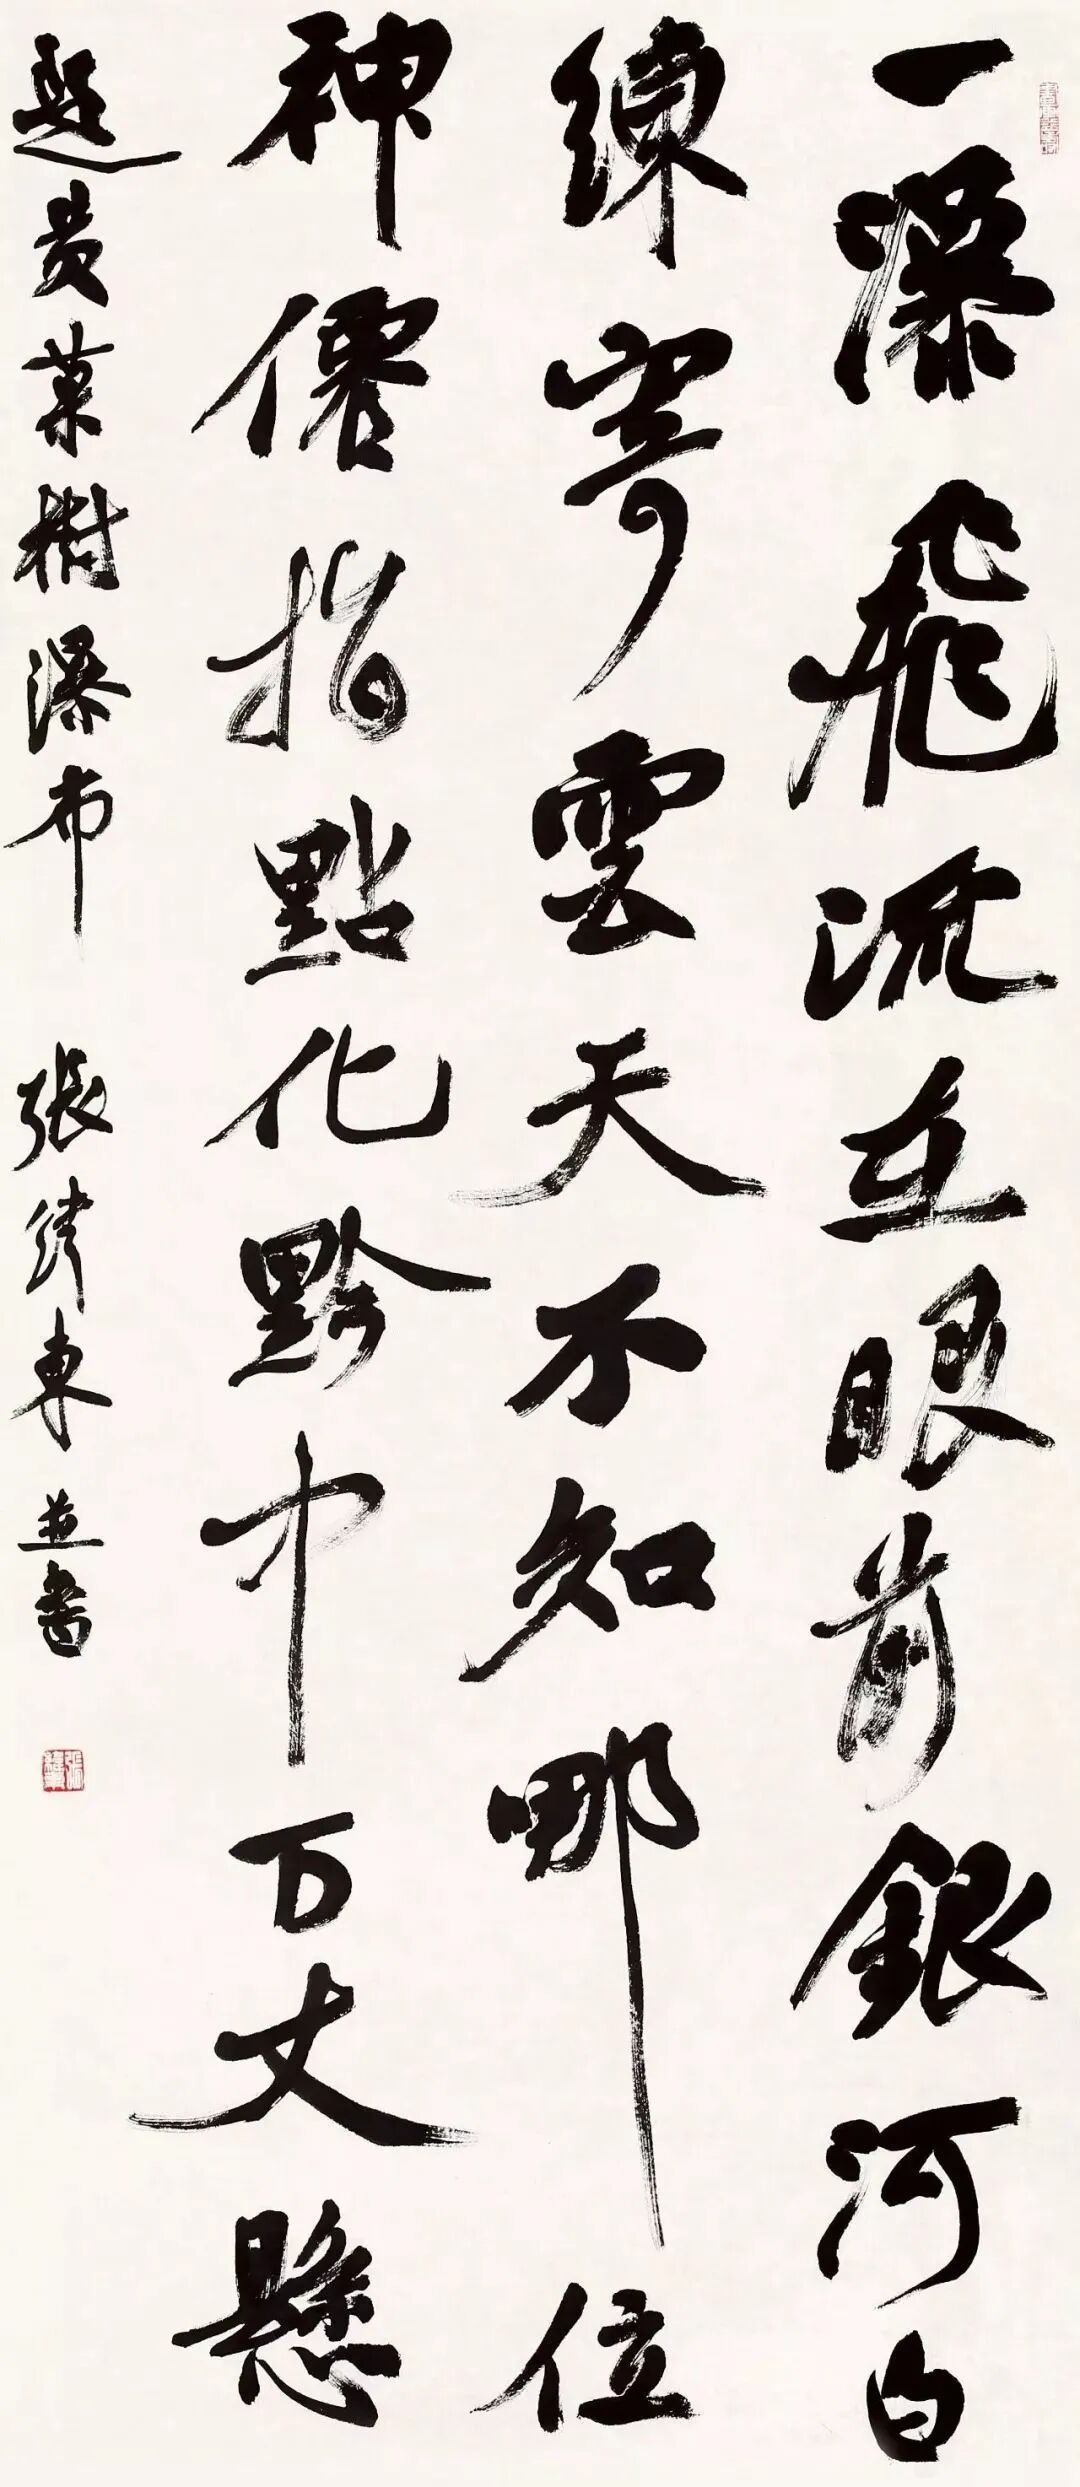 一瀑飛流在眼前銀河白
練寄雲天不知哪位
神僊指點化黔中万丈懸
題黄菓樹瀑布 張緯東並書